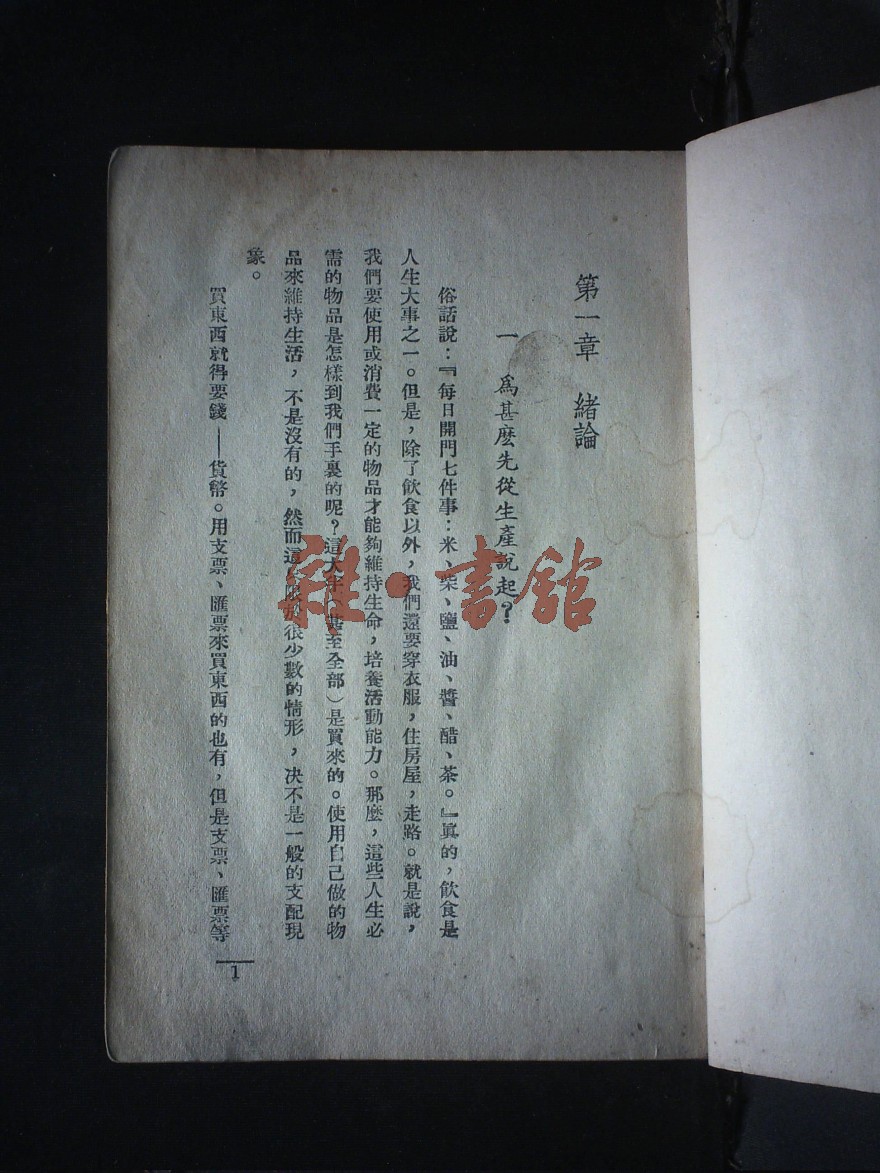 第一章　緒論
一　爲甚麽先從生產說起？
俗話說：『每日開門七件事：米、柴、鹽、油、醬、醋、茶。』眞的，飲食是
人生大事之一。但是，除了飲食以外，我們還要穿衣服，住房屋，走路。就是說，
我們要使用或消費一定的物品才能夠維持生命，培養活動能力。那麼，這些人生必
需的物品是怎樣到我們手裏的呢？這大半（甚至全部）是買來的。使用自己做的物
品來維持生活，不是沒有的，然而這限於很少數的情形，决不是一般的支配現
象。
買東西就得要錢——貨幣。用支票、匯票來買東西的也有，但是支票、匯票等
1
雜·書館